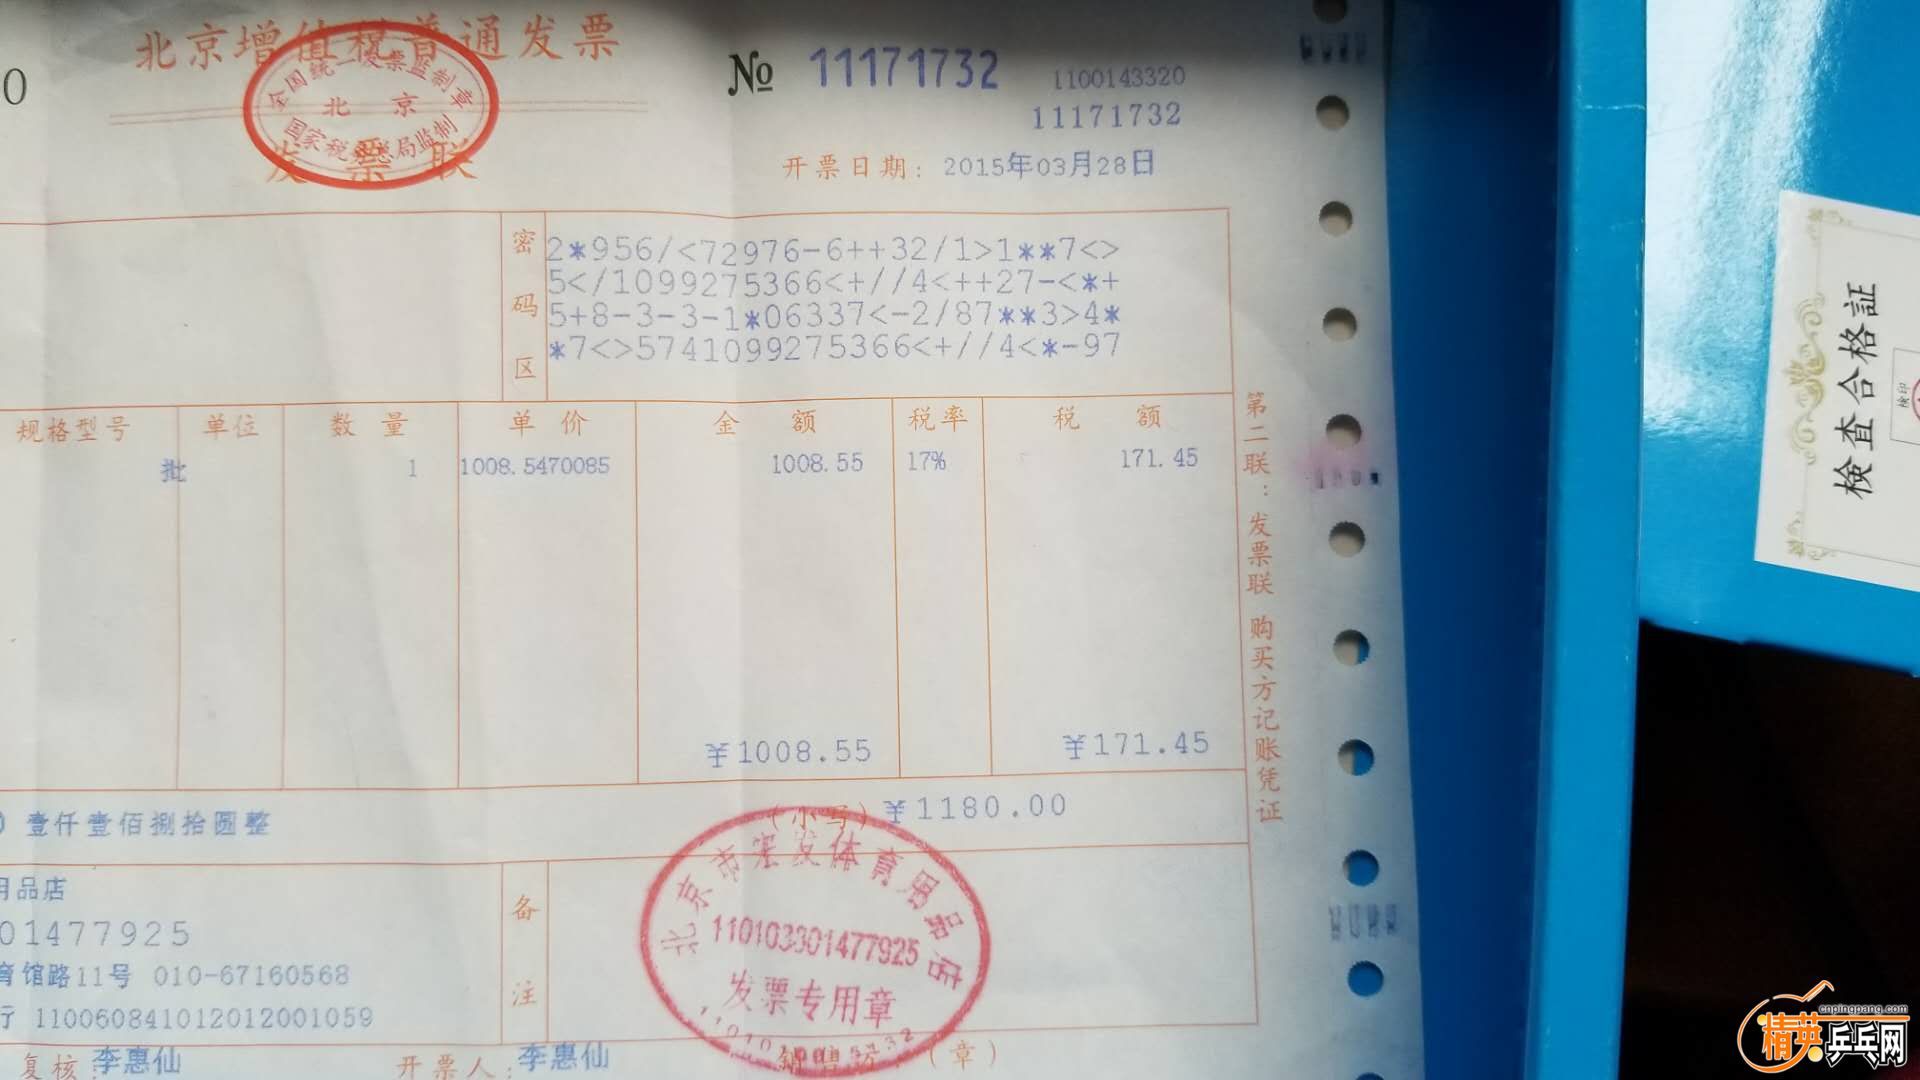 北京增值税普通发票
全国统一发票监制章
北 京
国家税务总局监制
发 票 联
0
№ 11171732
1100143320
11171732
开票日期: 2015年03月28日
密码区
2*956/<72976-6++32/1>1**7<>
5</1099275366<+//4<++27-<*+
5+8-3-3-1*06337<-2/87**3>4*
*7<>5741099275366<+//4<*-97
规格型号 单位 数量 单价 金额 税率 税额
批 1 1008.5470085 1008.55 17% 171.45
¥1008.55 ¥171.45
壹仟壹佰捌拾圆整 (小写) ¥1180.00
用品店
01477925
育馆路11号 010-67160568
行 110060841012012001059
备注
北京市宏发体育用品店
110103301477925
发票专用章
复核: 李惠仙 开票人: 李惠仙 (章)
第二联: 发票联 购买方记账凭证
検査合格証
検印
cnpingpang.com
精英乒乓网